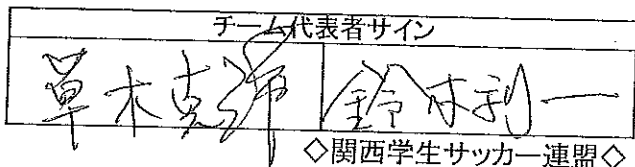 チーム代表者サイン
草木克洋 鈴木利一
◇関西学生サッカー連盟◇